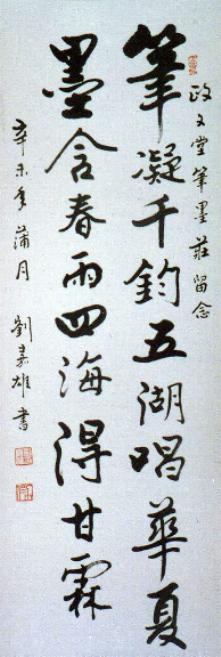 政文堂筆墨莊留念
筆凝千鈞五湖唱華夏
墨含春雨四海得甘霖
辛未年蒲月
劉嘉雄書